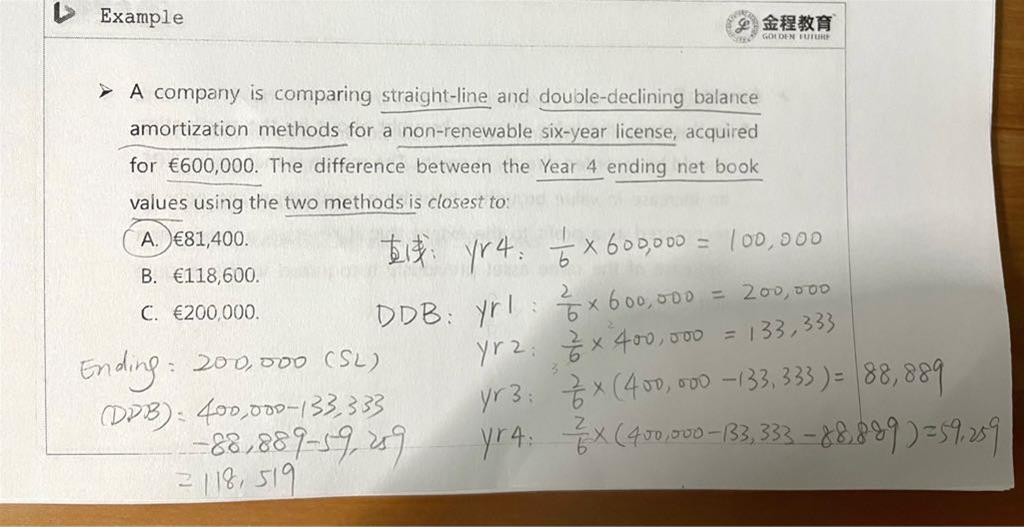 Example
金程教育
GOLDEN FUTURE
➤ A company is comparing straight-line and double-declining balance
amortization methods for a non-renewable six-year license, acquired
for €600,000. The difference between the Year 4 ending net book
values using the two methods is closest to:
A. €81,400.
B. €118,600.
C. €200,000.
直线: yr4: 1/6 × 600,000 = 100,000
DDB: yr1: 2/6 × 600,000 = 200,000
yr2: 2/6 × 400,000 = 133,333
yr3: 2/6 × (400,000 - 133,333) = 88,889
yr4: 2/6 × (400,000 - 133,333 - 88,889) = 59,259
Ending: 200,000 (SL)
(DDB) = 400,000 - 133,333
- 88,889 - 59,259
= 118,519